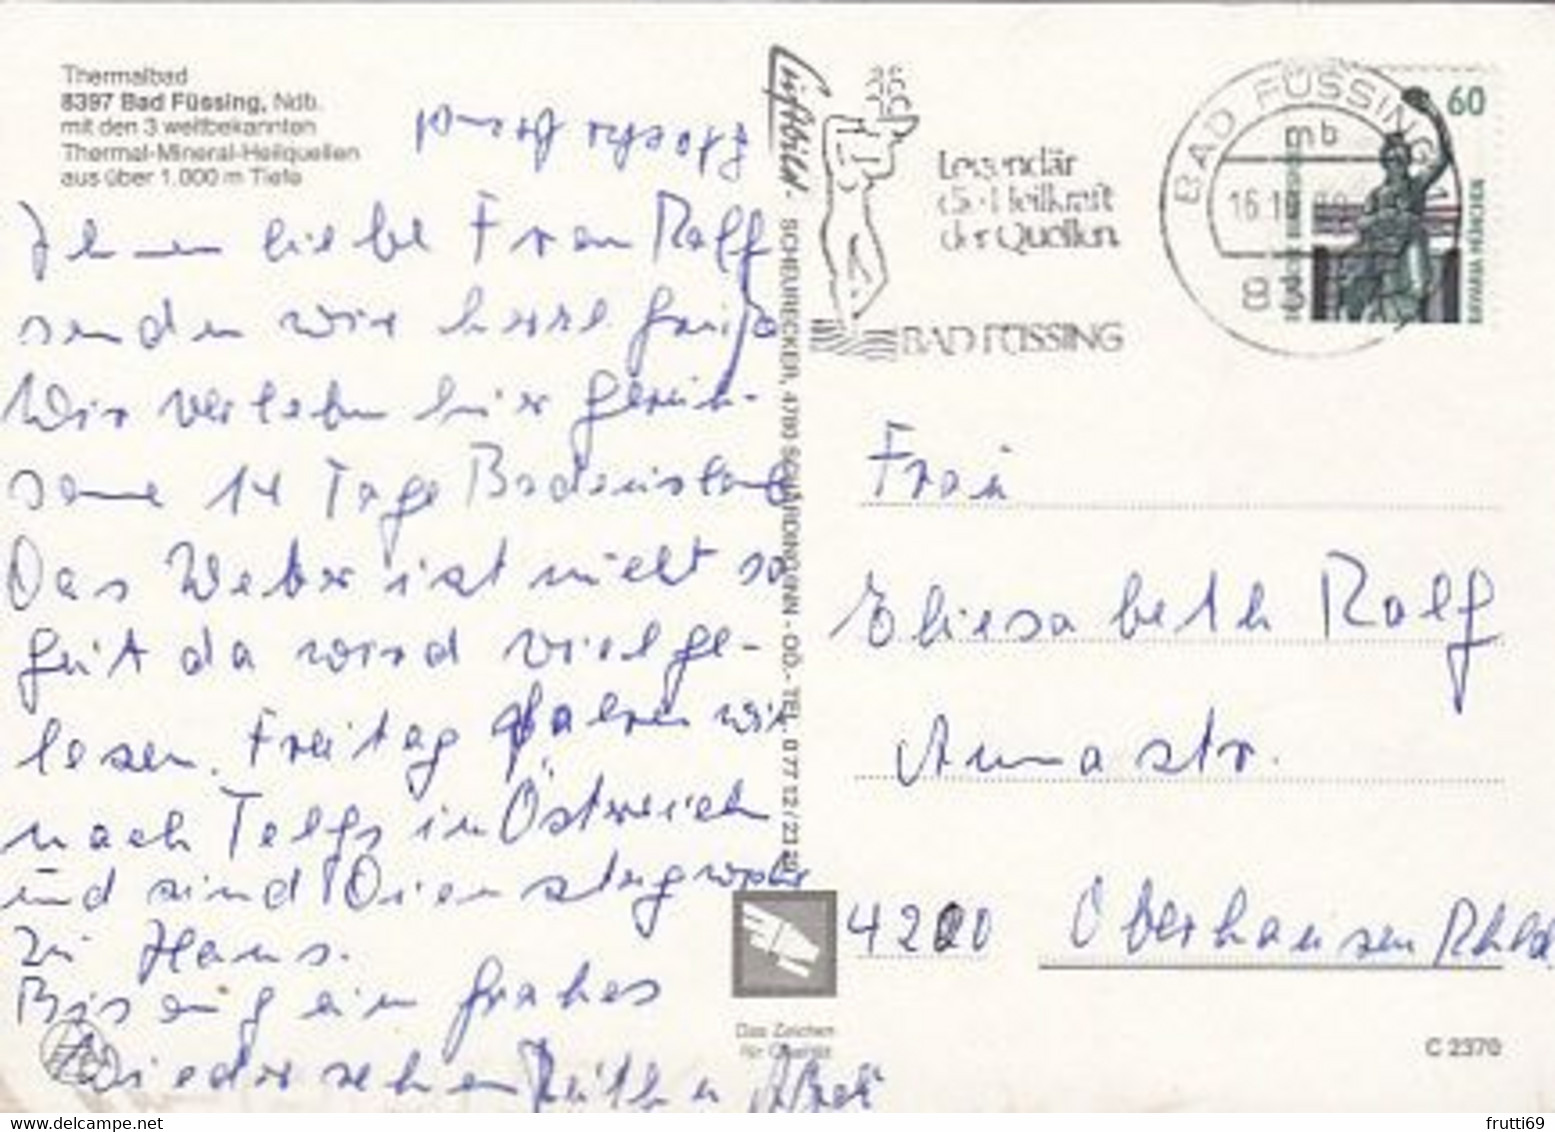 Thermalbad
8397 Bad Füssing, Ndb.
mit den 3 weltbekannten
Thermal-Mineral-Heilquellen
aus über 1.000 m Tiefe
Ihnen liebe Frau Rolf
senden wir herzl. Grüße
Wir verleben hier geruh-
same 14 Tage Badeurlaub
Das Wetter ist nicht so
gut da wird viel ge-
lesen. Freitag fahren wir
nach Telfs in Österreich
und sind Dienstag wieder
zu Haus.
Bis auf ein frohes
Wiedersehen
SCHEURECKER, 4780 SCHÄRDING/INN - OÖ. - TEL. 0 77 12/23
Das Zeichen
für Qualität
Legendär
die Heilkraft
der Quellen
BAD FÜSSING
BAD FÜSSING 1
mb
60
BAVARIA MÜNCHEN
Frau
Eliesabeth Rolf
Annastr.
4200 Oberhausen Rhld
C 2370
frutti69